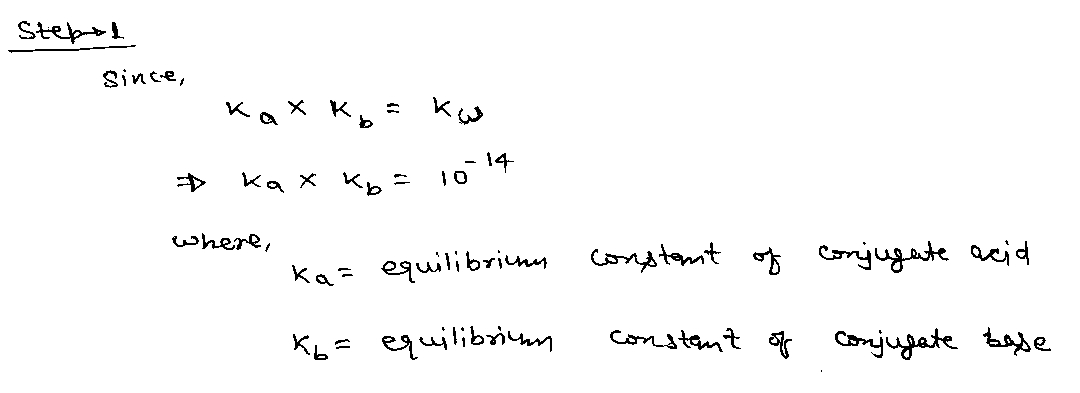 Step→1
Since,
Ka × Kb = Kw
⇒ Ka × Kb = 10^-14
where,
Ka = equilibrium constant of conjugate acid
Kb = equilibrium constant of conjugate base